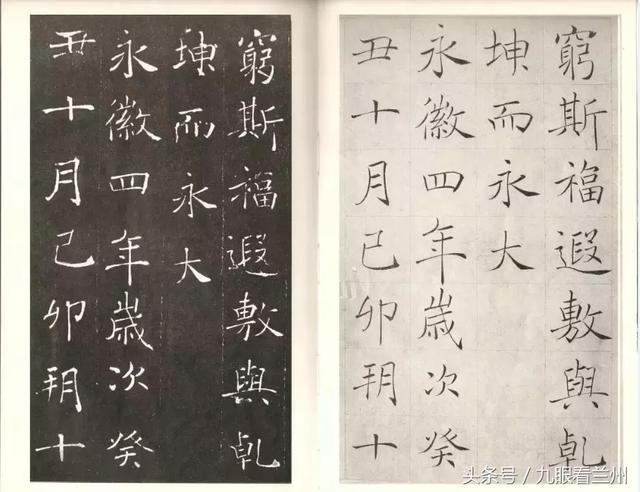 窮斯福遐敷與乹
坤而永大
永徽四年歲次癸
丑十月己卯玥十
窮斯福遐敷與乹
坤而永大
永徽四年歲次癸
丑十月己卯玥十
头条号/九眼看兰州